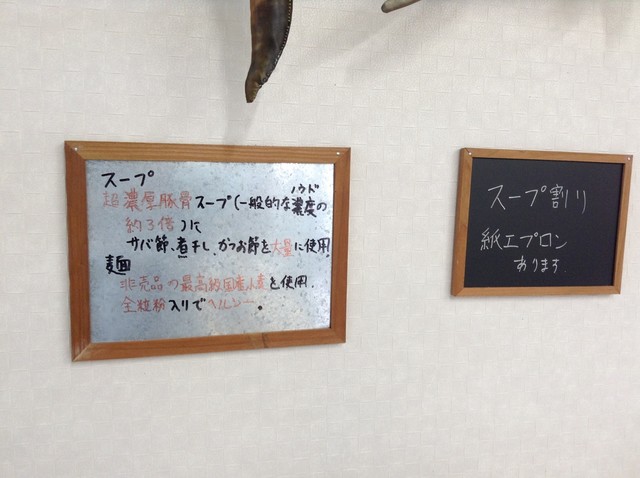 スープ
超濃厚豚骨スープ(一般的な濃度の
ノウド
約3倍)に
サバ節、煮干し、かつお節を大量に使用。
麺
非売品の最高級国産小麦を使用.
全粒粉入りでヘルシー。
スープ割り
紙エプロン
あります.